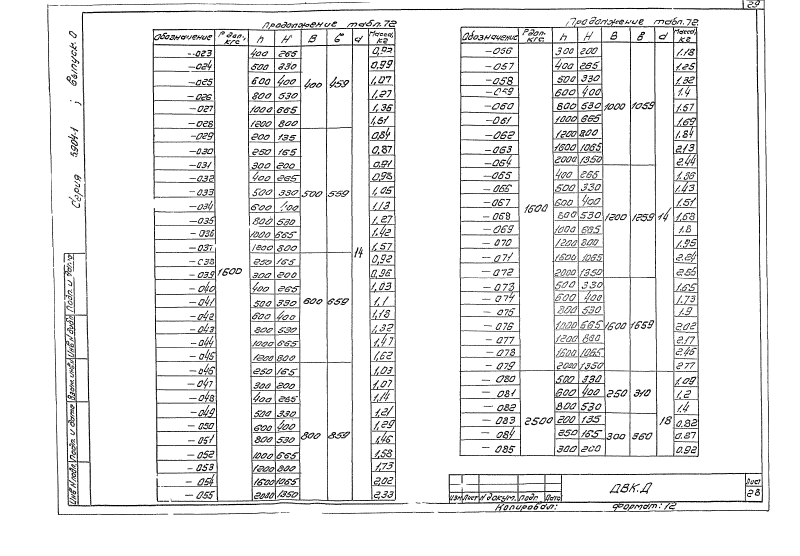 29
Продолжение табл. 72
Обозначение Рдоп, кгс h H B б d Масса, кг
-023 400 265 0,92
-024 500 330 0,99
-025 600 400 400 459 1,07
-026 800 530 1,27
-027 1000 665 1,36
-028 1200 800 1,51
-029 200 135 0,84
-030 250 165 0,87
-031 300 200 0,91
-032 400 265 0,98
-033 500 330 500 559 1,05
-034 600 400 1,13
-035 800 530 1,27
-036 1000 665 1,42
-037 1200 800 14 1,57
-038 250 165 0,92
-039 1600 300 200 0,96
-040 400 265 1,03
-041 500 330 600 659 1,1
-042 600 400 1,18
-043 800 530 1,32
-044 1000 665 1,47
-045 1200 800 1,62
-046 250 165 1,03
-047 300 200 1,07
-048 400 265 1,14
-049 500 330 1,21
-050 600 400 800 859 1,29
-051 800 530 1,46
-052 1000 665 1,58
-053 1200 800 1,73
-054 1600 1065 2,02
-055 2000 1350 2,33
Продолжение табл. 72.
Обозначение Рдоп. кгс h H B В d Масса, кг
-056 300 200 1.18
-057 400 265 1.25
-058 500 330 1.32
-059 600 400 1.4
-060 800 530 1000 1059 1.57
-061 1000 665 1.69
-062 1200 800 1.84
-063 1600 1065 2.13
-064 2000 1350 2.44
-065 400 265 1.36
-066 500 330 1.43
-067 1600 600 400 1.51
-068 800 530 1200 1259 14 1,68
-069 1000 665 1.8
-070 1200 800 1.95
-071 1600 1065 2.24
-072 2000 1350 2.55
-073 500 330 1.65
-074 600 400 1.73
-075 800 530 1.9
-076 1000 665 1600 1659 2.02
-077 1200 800 2.17
-078 1600 1065 2.46
-079 2000 1350 2.77
-080 500 330 1.09
-081 600 400 250 310 1.2
-082 800 530 1.4
-083 2500 200 135 18 0.82
-084 250 165 300 360 0.87
-085 300 200 0.92
Серия 5.904-1 ; Выпуск 0
Инв N подл. Подп. и дата Взам. инв N Инв N дубл. Подп. и дата
Изм Лист N докум. Подп. Дата
ДВК.Д
Лист
28
Копировал: Формат: 12